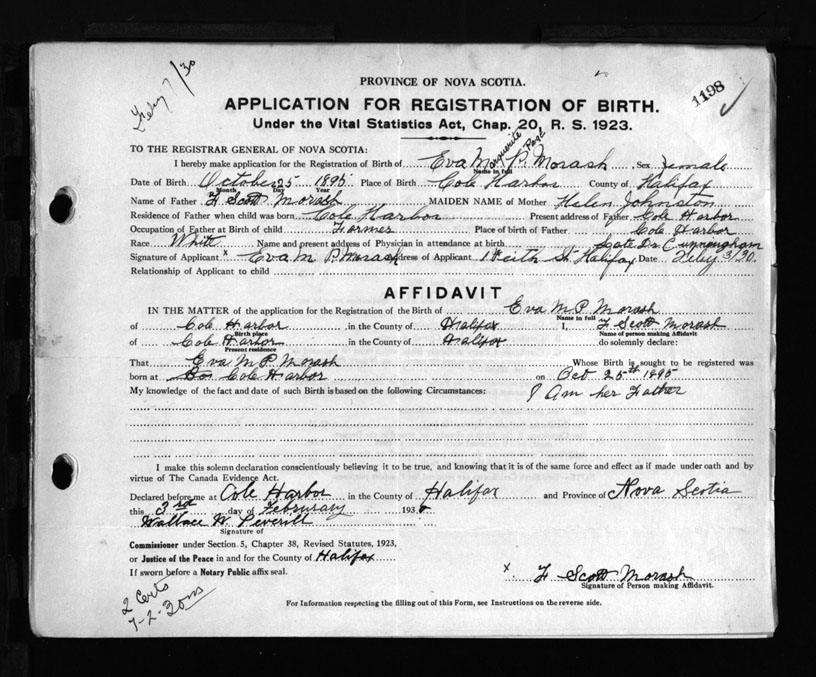 Feby 7/30
1198
PROVINCE OF NOVA SCOTIA.
APPLICATION FOR REGISTRATION OF BIRTH.
Under the Vital Statistics Act, Chap. 20, R. S. 1923.
TO THE REGISTRAR GENERAL OF NOVA SCOTIA:
Marguerite Page
I hereby make application for the Registration of Birth of Eva M. P. Morash Sex female
Name in full
Date of Birth October 25 1895 Place of Birth Cole Harbor County of Halifax
Month Day Year
Name of Father F Scott Morash MAIDEN NAME of Mother Helen Johnston
Residence of Father when child was born Cole Harbor Present address of Father Cole Harbor
Occupation of Father at Birth of child Farmer Place of birth of Father Cole Harbor
Race White Name and present address of Physician in attendance at birth Late Dr Cunningham
Signature of Applicant x Eva M P Morash Address of Applicant St Halifax Date Feby 3/30.
Relationship of Applicant to child
AFFIDAVIT
IN THE MATTER of the application for the Registration of the Birth of Eva M P. Morash
Name in full
of Cole Harbor in the County of Halifax I, F Scott Morash
Birth place Name of person making Affidavit
of Cole Harbor in the County of Halifax do solemnly declare:
Present residence
That Eva M P Morash Whose Birth is sought to be registered was
born at Cole Harbor on Oct 25th 1895
My knowledge of the fact and date of such Birth is based on the following Circumstances: I Am her Father
I make this solemn declaration conscientiously believing it to be true, and knowing that it is of the same force and effect as if made under oath and by
virtue of The Canada Evidence Act.
Declared before me at Cole Harbor in the County of Halifax and Province of Nova Scotia
this 3rd day of Februrary 1930
Wallace W. Peverill
Signature of
Commissioner under Section 5, Chapter 38, Revised Statutes, 1923,
or Justice of the Peace in and for the County of Halifax
If sworn before a Notary Public affix seal.
x. F Scott Morash
Signature of Person making Affidavit.
2 Certs
7-2-30
For Information respecting the filling out of this Form, see Instructions on the reverse side.